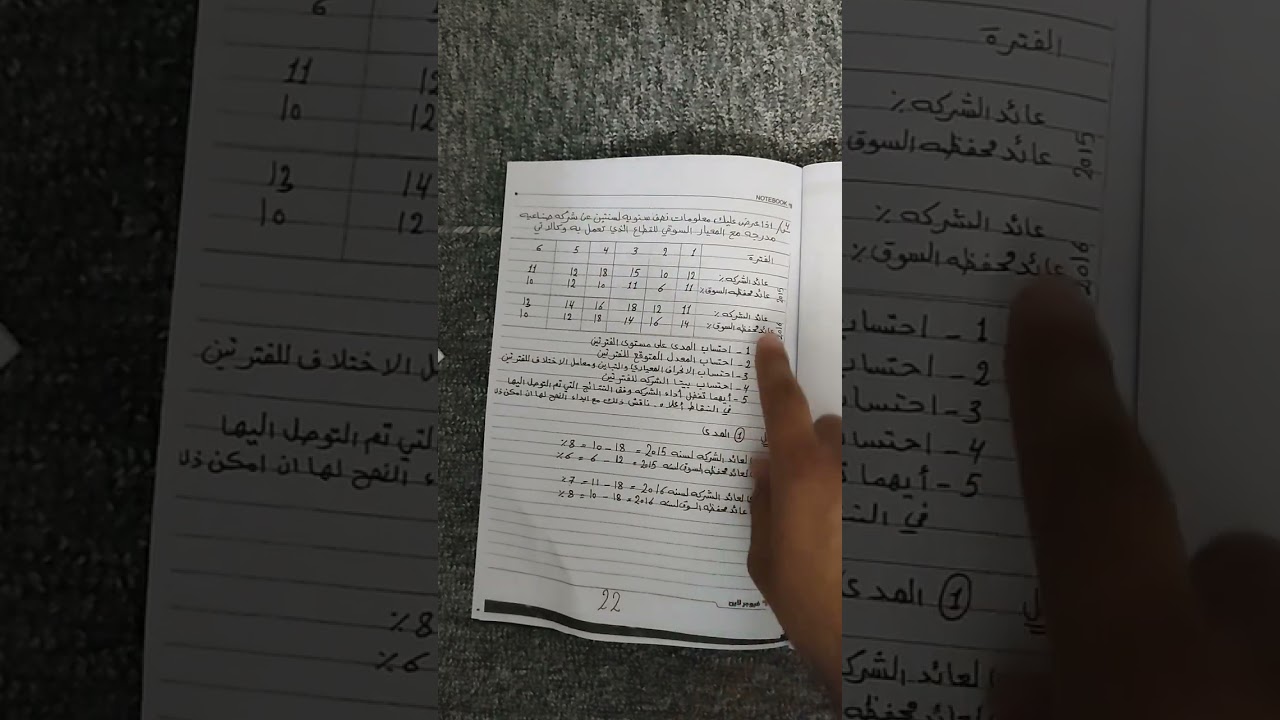 NOTEBOOK
س/ اذا عرض عليك معلومات نصف سنويه لسنتين عن شركه صناعيه
مدرجه مع المعيار السوقي للقطاع الذي تعمل به وكالاتي
الفترة 1 2 3 4 5 6
2015 عائد الشركه % 12 10 15 18 12 11
عائد محفظه السوق % 11 6 11 10 12 10
2016 عائد الشركه % 11 12 18 16 14 13
عائد محفظه السوق % 14 16 14 18 12 10
1 - احتساب المدى على مستوى الفترتين
2 - احتساب المعدل المتوقع للفترتين
3 - احتساب الانحراف المعياري والتباين ومعامل الاختلاف للفترتين
4 - احتساب بيتا الشركه للفترتين
5 - أيهما تفضل أداء الشركه وفق النتائج التي تم التوصل اليها
في النقاط أعلاه .. ناقش ذلك مع ابداء النصح لها ان امكن ذلك
1 المدى
لعائد الشركه لسنه 2015 = 18 - 10 = 8%
لعائد محفظه السوق لسنه 2015 = 12 - 6 = 6%
لعائد الشركه لسنه 2016 = 18 - 11 = 7%
عائد محفظه السوق لسنه 2016 = 18 - 10 = 8%
22
فيوجر لاين